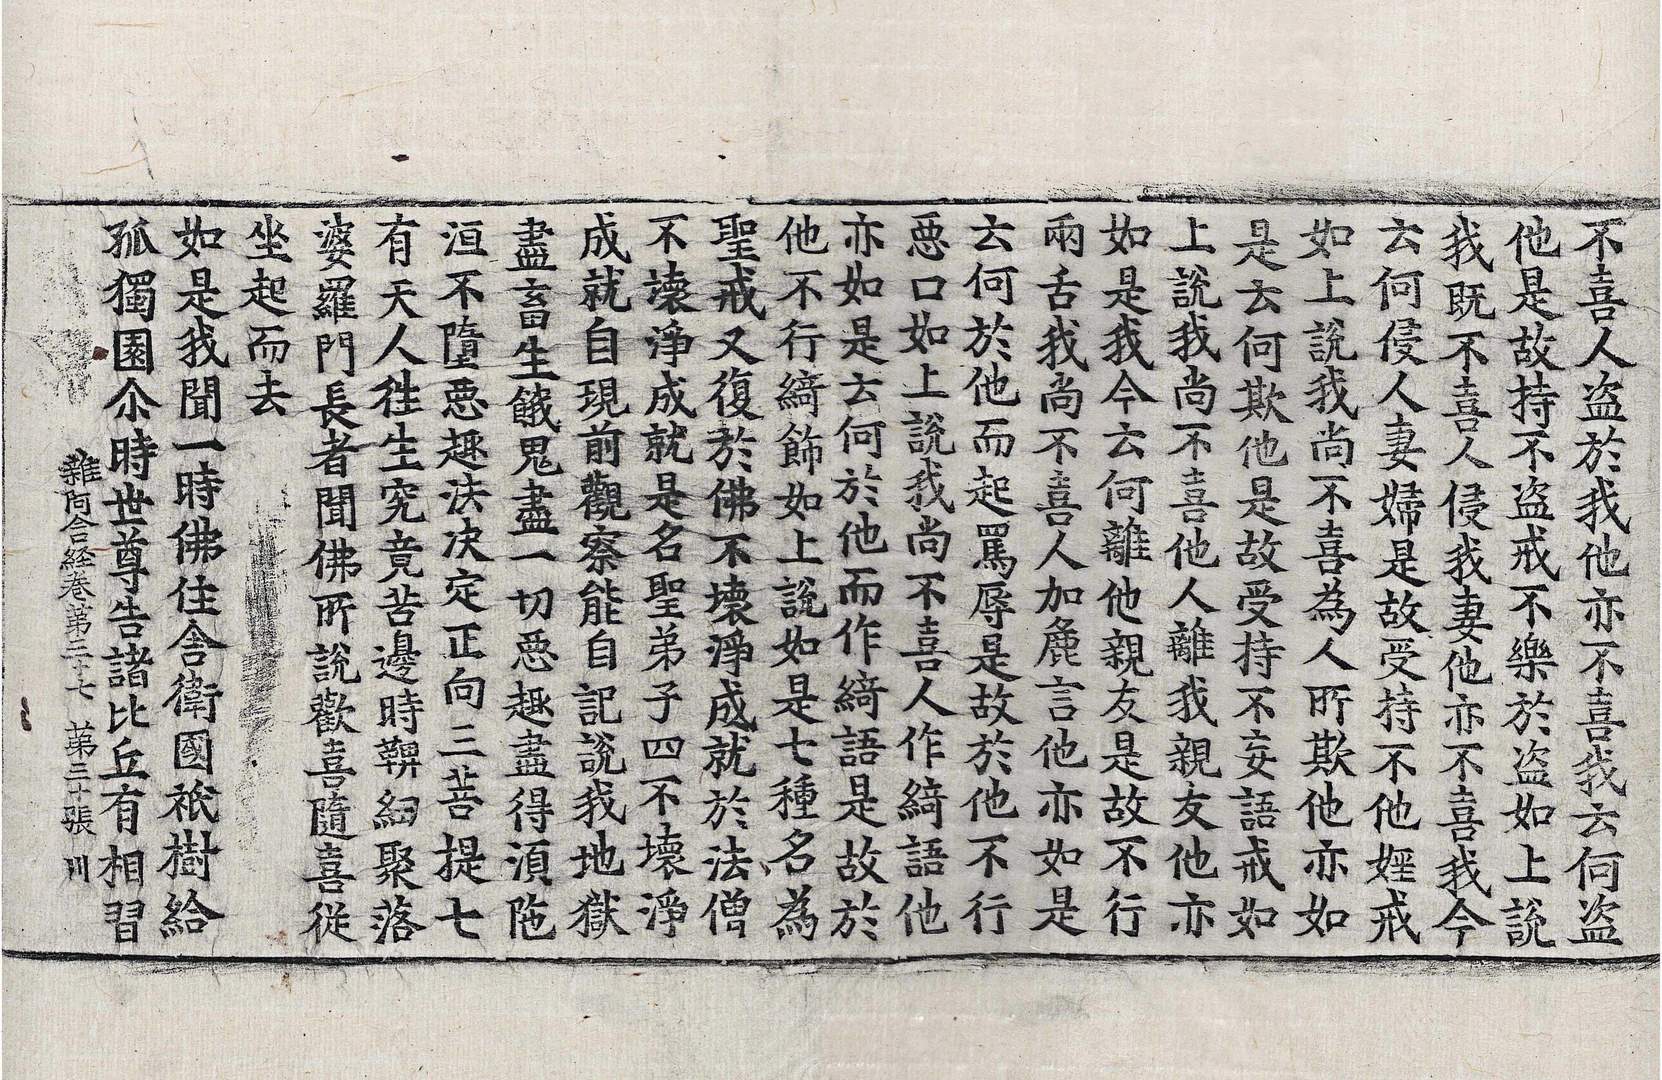 不喜人盜於我他亦不喜我云何盜
他是故持不盜戒不樂於盜如上說
我既不喜人侵我妻他亦不喜我今
云何侵人妻婦是故受持不他婬戒
如上說我尚不喜為人所欺他亦如
是云何欺他是故受持不妄語戒如
上說我尚不喜他人離我親友他亦
如是我今云何離他親友是故不行
兩舌我尚不喜人加麁言他亦如是
云何於他而起罵辱是故於他不行
惡口如上說我尚不喜人作綺語他
亦如是云何於他而作綺語是故於
他不行綺飾如上說如是七種名為
聖戒又復於佛不壞淨成就於法僧
不壞淨成就是名聖弟子四不壞淨
成就自現前觀察能自記說我地獄
盡畜生餓鬼盡一切惡趣盡得湏陁
洹不墮惡趣法決定正向三菩提七
有天人徃生究竟苦邊時鞞紐聚落
婆羅門長者聞佛所說歡喜隨喜従
坐起而去
如是我聞一時佛住舍衛國祇樹給
孤獨園尒時世尊告諸比丘有相習
雜阿含経卷第三十七 苐三十張 川